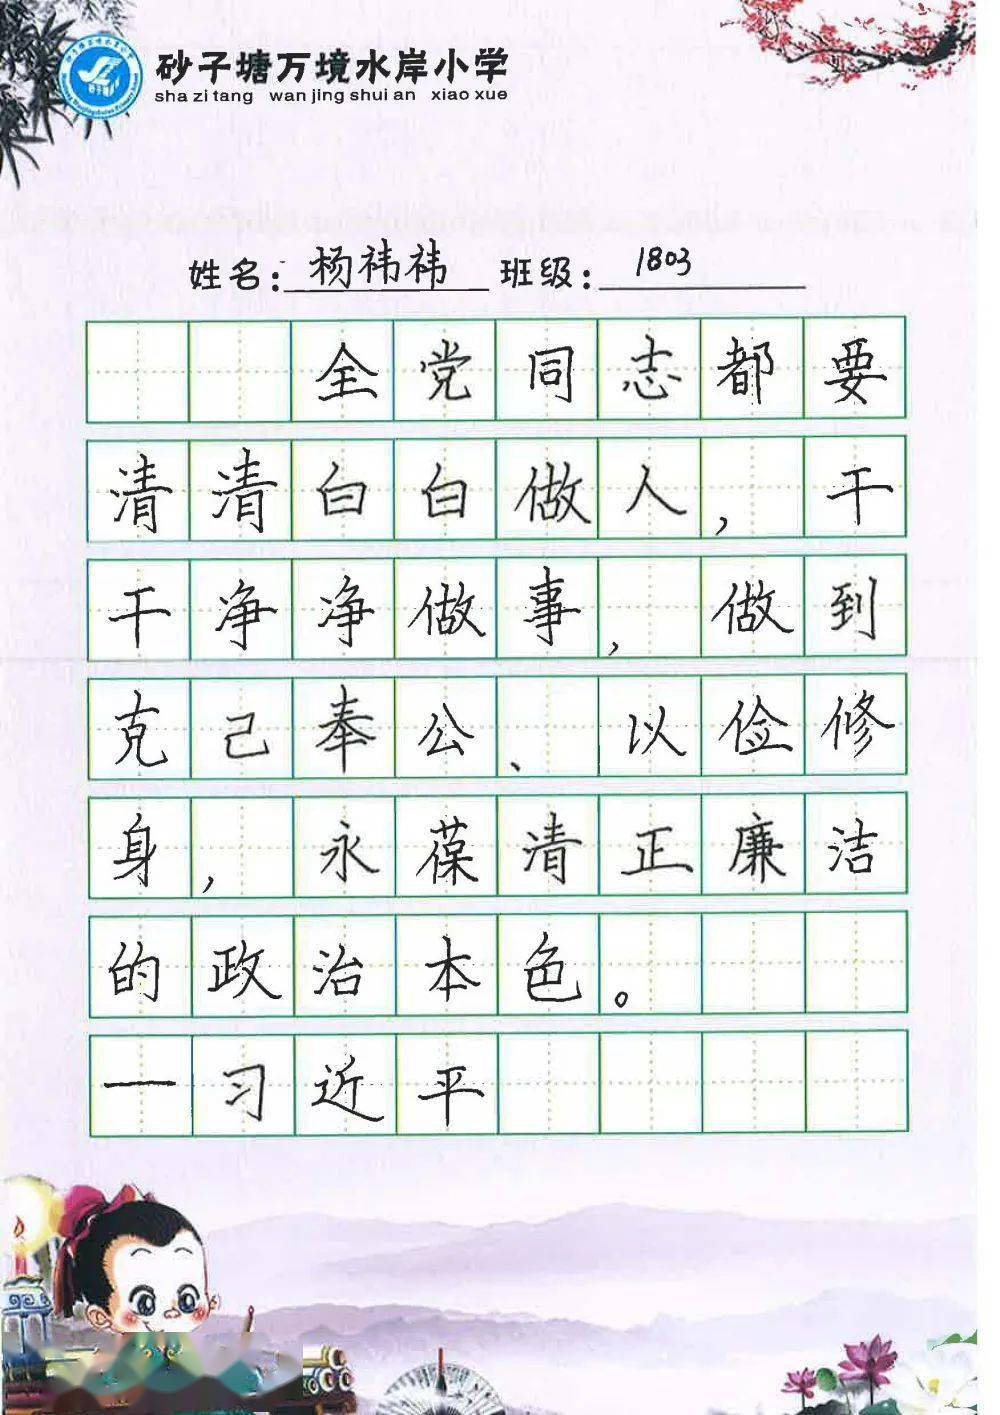 砂子塘万境水岸小学
sha zi tang wan jing shui an xiao xue
姓名：杨祎祎 班级：1803
全党同志都要
清清白白做人，干
干净净做事，做到
克己奉公、以俭修
身，永葆清正廉洁
的政治本色。
—习近平